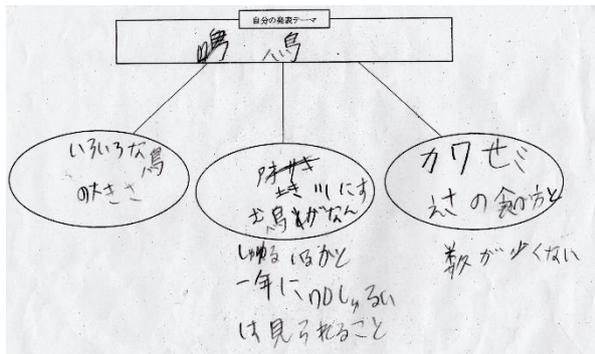 自分の発表テーマ
鳴 鳥
いろいろな鳥
の大きさ
川にす
む鳥がなん
しゅるいるかと
一年に 110しゅるい
は見られること
カワセミ
えさの食べ方と
数が少くない